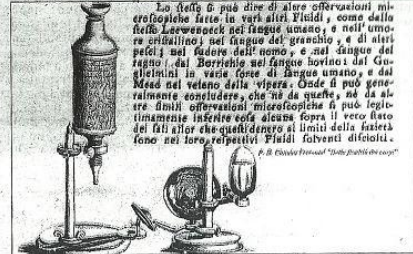 Lo stesso si può dire di altre osservazioni mi-
croscopiche fatte in varj altri Fluidi, come dallo
stesso Leewenoeck nel sangue umano, e nell'umo-
re cristallino; nel sangue del granchio, e di altri
pesci; nel sudore dell'uomo, e nel sangue del
ragno: dal Borrichio nel sangue bovino: dal Gu-
glielmini in varie sorte di sangue umano, e dal
Mead nel veleno della vipera. Onde si può gene-
ralmente concludere, che nè da queste, nè da al-
tre simili osservazioni microscopiche si può legit-
timamente inferire cosa alcuna sopra il vero stato
dei sali allor che questi denero ai limiti della sazietà
sono nei loro respettivi Fluidi solventi disciolti.